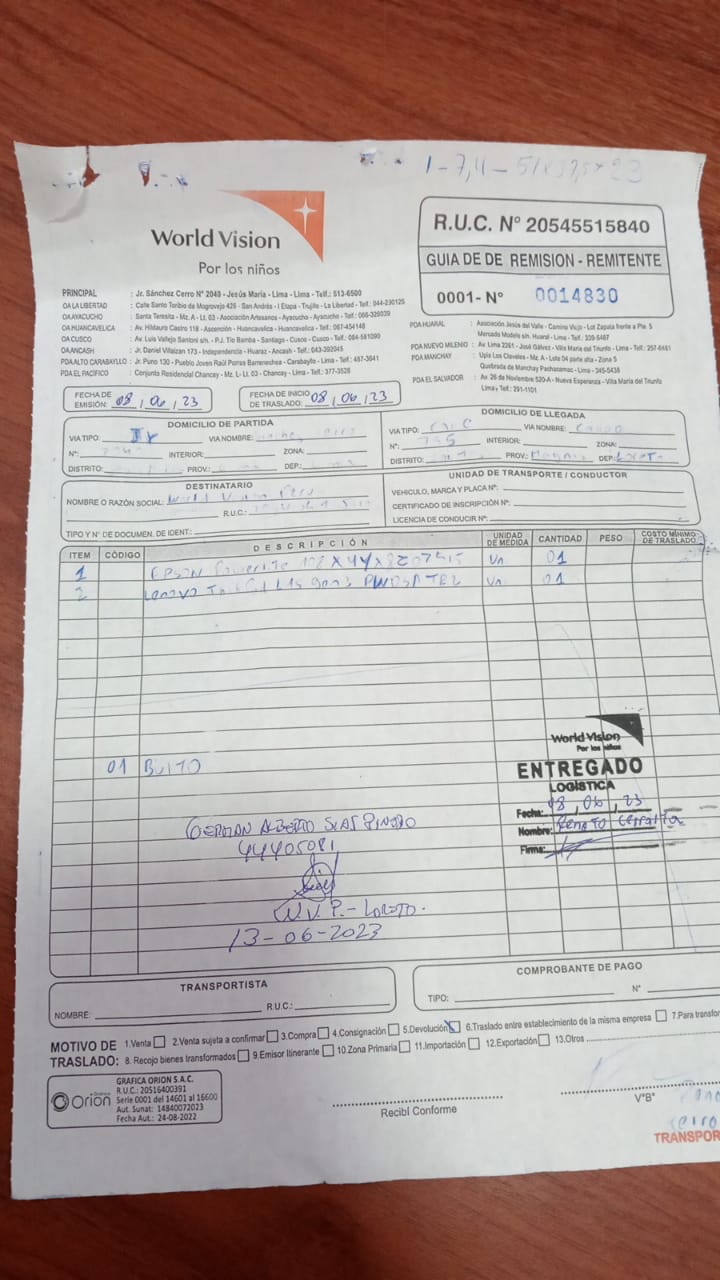 1 - 7,4 - 51 x 37,5 x 23
World Vision
Por los niños
R.U.C. N° 20545515840
GUIA DE DE REMISION - REMITENTE
0001- N° 0014830
PRINCIPAL : Jr. Sánchez Cerro N° 2040 - Jesús María - Lima - Lima - Telf.: 513-6500
OA LA LIBERTAD : Calle Santo Toribio de Mogrovejo 426 - San Andrés - I Etapa - Trujillo - La Libertad - Telf.: 044-290125
OA AYACUCHO : Santa Teresita - Mz. A - Lt. 03 - Asociación Artesanos - Ayacucho - Ayacucho - Telf.: 066-326039
OA HUANCAVELICA : Av. Hildauro Castro 118 - Ascención - Huancavelica - Huancavelica - Telf.: 067-454148
OA CUSCO : Av. Luis Vallejo Santoni s/n. - P.J. Tío Bamba - Santiago - Cusco - Cusco - Telf.: 084-581090
OA ANCASH : Jr. Daniel Villaizan 173 - Independencia - Huaraz - Ancash - Telf.: 043-392045
PDA ALTO CARABAYLLO : Jr. Puno 130 - Pueblo Joven Raúl Porras Barrenechea - Carabayllo - Lima - Telf.: 487-3641
PDA EL PACIFICO : Conjunto Residencial Chancay - Mz. L - Lt. 03 - Chancay - Lima - Telf.: 377-3528
PDA HUARAL : Asociación Jesús del Valle - Camino Viejo - Lot Zapata frente a Pte. 5
Mercado Modelo s/n. Huaral - Lima - Telf.: 339-5487
PDA NUEVO MILENIO : Av. Lima 2261 - José Gálvez - Villa María del Triunfo - Lima - Telf.: 257-6481
PDA MANCHAY : Upis Los Claveles - Mz. A - Lote 04 parte alta - Zona 5
Quebrada de Manchay Pachacamac - Lima - 345-5438
PDA EL SALVADOR : Av. 26 de Noviembre 520-A - Nueva Esperanza - Villa María del Triunfo
Lima - Telf.: 291-1101
FECHA DE EMISIÓN: 08, 06, 23
FECHA DE INICIO DE TRASLADO: 08, 06, 23
DOMICILIO DE PARTIDA
VIA TIPO: Jr VIA NOMBRE:
N°: INTERIOR: ZONA:
DISTRITO: PROV.: DEP.:
DOMICILIO DE LLEGADA
VIA TIPO: VIA NOMBRE:
N°: 795 INTERIOR: ZONA:
DISTRITO: PROV.: DEP.: Loreto
DESTINATARIO
NOMBRE O RAZÓN SOCIAL: World Vision Perú
R.U.C.:
TIPO Y N° DE DOCUMEN. DE IDENT.:
UNIDAD DE TRANSPORTE / CONDUCTOR
VEHICULO, MARCA Y PLACA N°:
CERTIFICADO DE INSCRIPCIÓN N°:
LICENCIA DE CONDUCIR N°:
ITEM CÓDIGO DESCRIPCIÓN UNIDAD DE MEDIDA CANTIDAD PESO COSTO MÍNIMO DE TRASLADO
1 EPSON Un 01
2 Lenovo Un 01
01 BULTO
World Vision
Por los niños
ENTREGADO
LOGÍSTICA
Fecha: 08, 06, 23
Nombre: Renato
Firma:
GERMAN ALBERTO
44405081
W.V.P.- LORETO.
13-06-2023
TRANSPORTISTA
NOMBRE: R.U.C.:
COMPROBANTE DE PAGO
TIPO: N°
MOTIVO DE TRASLADO: 1.Venta 2.Venta sujeta a confirmar 3.Compra 4.Consignación 5.Devolución 6.Traslado entre establecimiento de la misma empresa 7.Para transfor
8. Recojo bienes transformados 9.Emisor Itinerante 10.Zona Primaria 11.Importación 12.Exportación 13.Otros
Orion
GRAFICA ORION S.A.C.
R.U.C.: 20516400391
Serie 0001 del 14601 al 16600
Aut. Sunat: 14840072023
Fecha Aut.: 24-08-2022
Recibí Conforme
V°B°
TRANSPOR